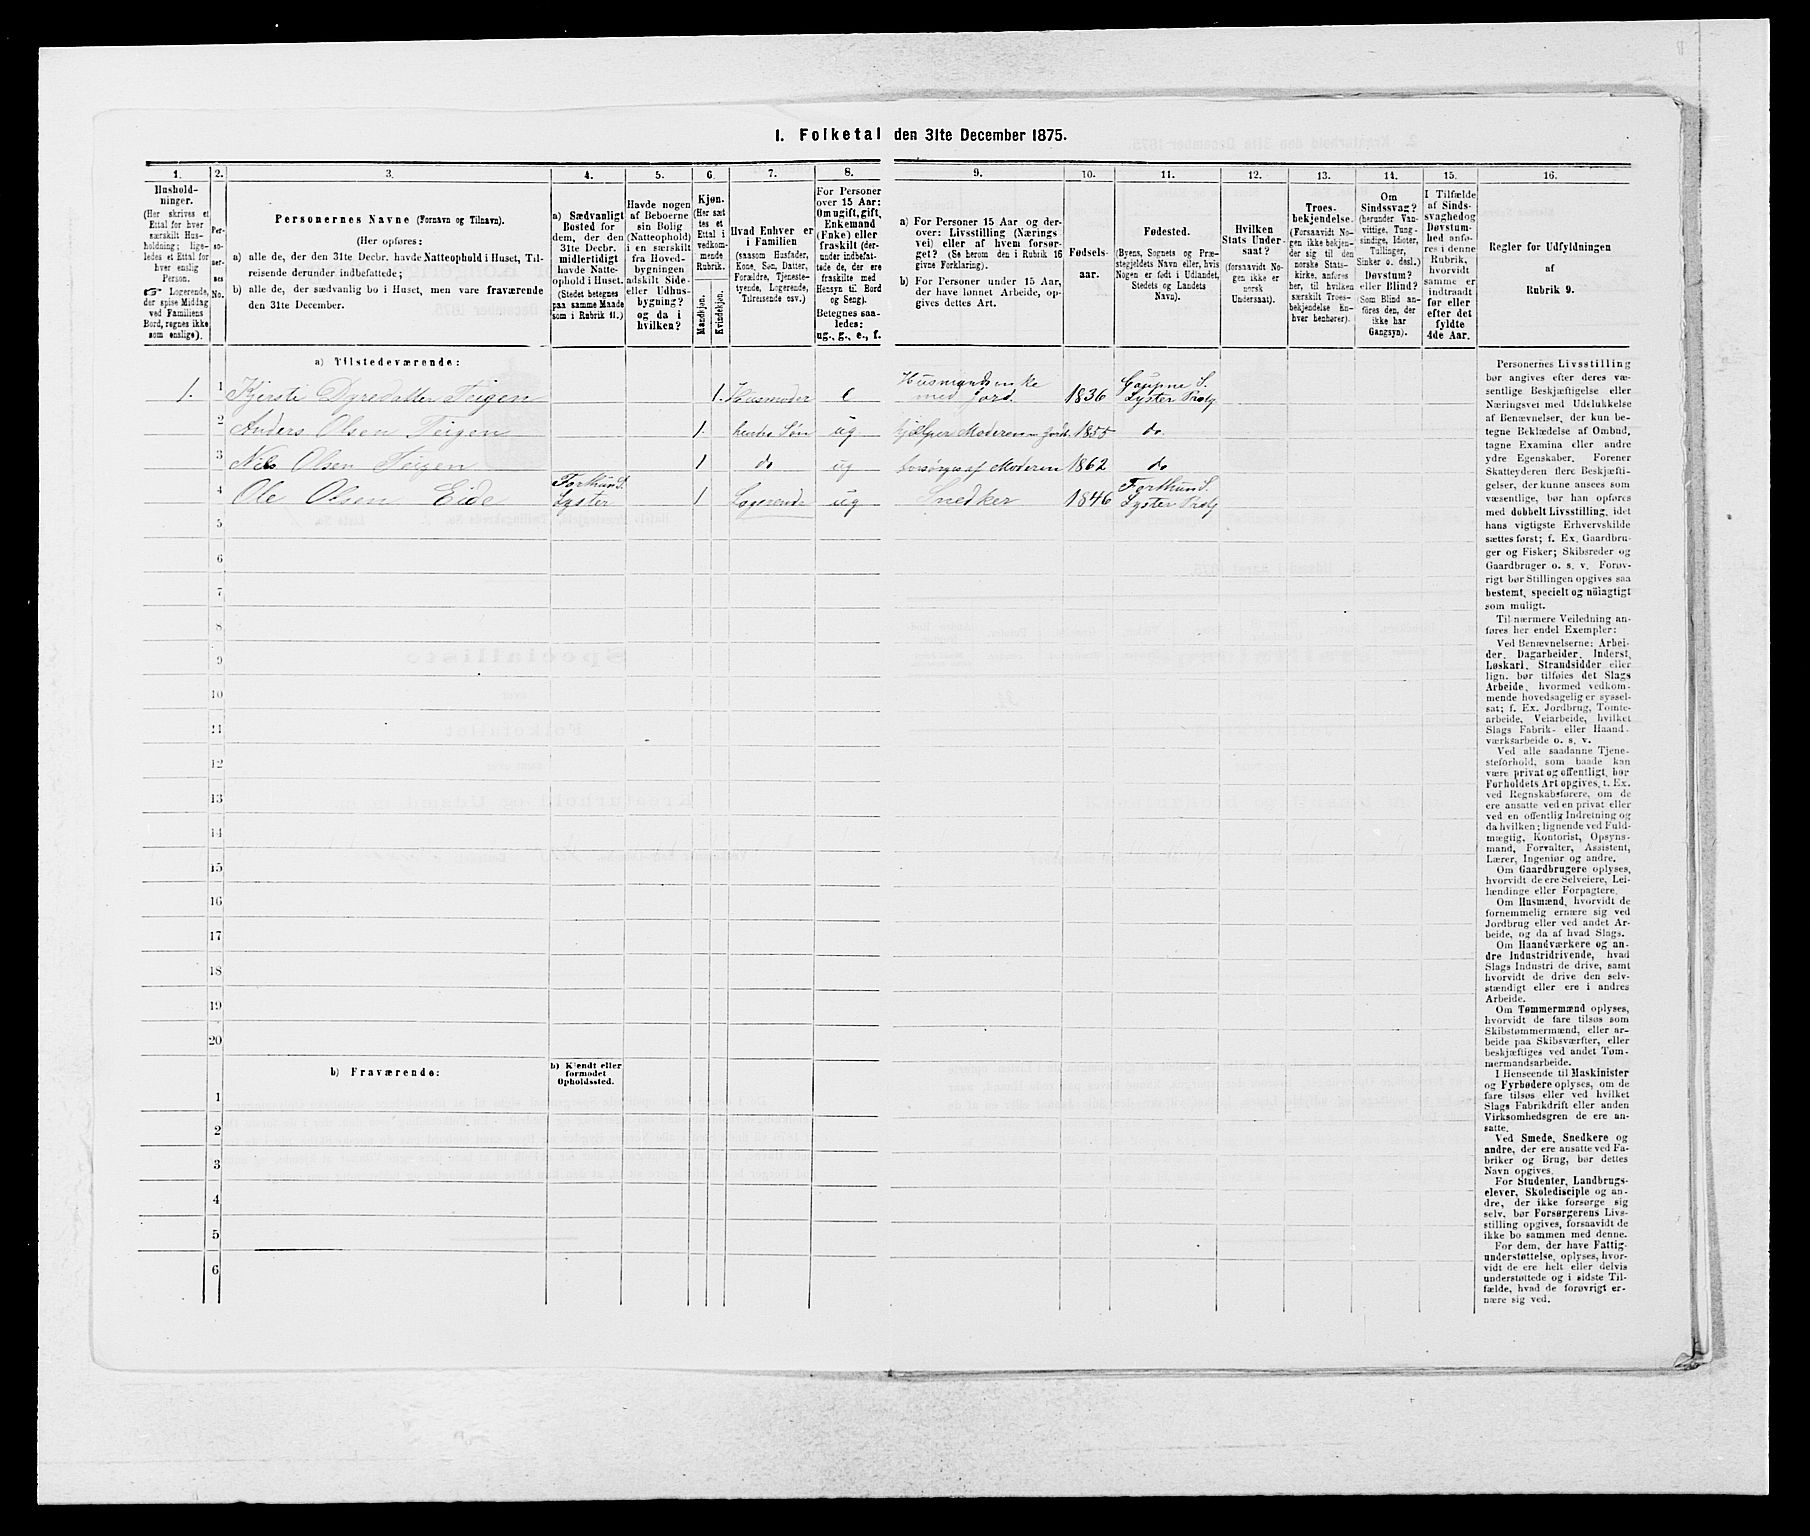 1. Folketal den 31te December 1875.
1. 2. 3. 4. 5. 6. 7. 8. 9. 10. 11. 12. 13. 14. 15. 16.
Hushold-
ninger.
(Her skrives et
Ettal for hver
særskilt Hus-
holdning; lige-
ledes et Ettal for
hver enslig
Person.
☞ Logerende,
der spise Middag
ved Familiens
Bord, regnes ikke
som enslige).
Per-
so-
ner-
nes
No.
Personernes Navne (Fornavn og Tilnavn).
(Her opføres:
a) alle de, der den 31te Decbr. havde Natteophold i Huset, Til-
reisende derunder indbefattede;
b) alle de, der sædvanlig bo i Huset, men vare fraværende
den 31te December.
a) Sædvanligt
Bosted for
dem, der den
31te Decbr.
midlertidigt
havde Natte-
ophold i Huset.
(Stedet betegnes
paa samme Maade
som i Rubrik 11.)
Havde nogen
af Beboerne
sin Bolig
(Natteophold)
i en særskilt
fra Hoved-
bygningen
adskilt Side-
eller Udhus-
bygning?
og da i
hvilken?
Kjøn.
(Her sæt
tes et
Ettal i
vedkom-
mende
Rubrik.
Mandkjøn.
Kvindekjøn.
Hvad Enhver er
i Familien
(saasom Husfader,
Kone, Søn, Datter,
Forældre, Tjeneste-
tyende, Logerende,
Tilreisende osv.)
For Personer
over 15 Aar:
Om ugift, gift,
Enkemand
(Enke) eller
fraskilt (der-
under indbefat-
tede de, der ere
fraskilte med
Hensyn til Bord
og Seng).
Betegnes saa-
ledes:
ug., g., e., f.
a) For Personer 15 Aar og der-
over: Livsstilling (Nærings-
vei) eller af hvem forsør-
get? (Se herom den i Rubrik 16
givne Forklaring).
b) For Personer under 15 Aar,
der have lønnet Arbeide, op-
gives dettes Art.
Fødsels-
aar.
Fødested.
(Byens, Sognets og Præ-
stegjeldets Navn eller, hvis
Nogen er født i Udlandet,
Stedets og Landets
Navn).
Hvilken
Stats Under-
saat?
(forsaavidt No-
gen ikke er
norsk
Undersaat).
Troes-
bekjendelse.
(Forsaavidt No-
gen ikke bekjen-
der sig til den
norske Stats-
kirke, anføres
her, til hvilken
særskilt Troes-
bekjendelse En-
hver henhører).
Om
Sindssvag?
(herunder Van-
vittige, Tung-
sindige, Idioter,
Tullinger,
Sinker o. desl.)
Døvstum?
eller Blind?
(Som Blind an-
føres den, der
ikke har
Gangsyn).
I Tilfælde
af Sinds-
svaghed og
Døvstum-
hed anfø-
res i denne
Rubrik,
hvorvidt
samme er
indtraadt
før eller
efter det
fyldte
4de Aar.
Regler for Udfyldningen
af
Rubrik 9.
a) Tilstedeværende:
1. 1 Kjersti Dyredatter Teigen 1. Husmoder e Husmandsenke med Jord. 1836 Gaupne S. Lyster Prstg
2 Anders Olsen Teigen 1. hendes Søn ug hjælper Moderen m Jordb. 1855 do.
3 Nils Olsen Teigen 1 do ug forsørges af Moderen 1862 do
4 Ole Olsen Eide Forthun S. Lyster 1 Logerende ug Snedker 1846 Forthun S. Lyster Prstg
5
6
7
8
9
10
11
12
13
14
15
16
17
18
19
20
b) Fraværende:
b) Kjendt eller
formodet
Opholdssted.
1
2
3
4
5
6
Personernes Livsstilling
bør angives efter deres væ-
sentlige Beskjæftigelse eller
Næringsvei med Udelukkelse
af Benævnelser, der kun be-
tegne Beklædelse af Ombud,
tagne Examina eller andre
ydre Egenskaber. Forener
Skatteyderen flere Beskjæfti-
gelser, der kunne ansees som
væsentlige, bør han opføres
med dobbelt Livsstilling, idet
hans vigtigste Erhvervskilde
sættes først; f. Ex. Gaardbru-
ger og Fisker; Skibsreder og
Gaardbruger o. s. v. Forøv-
rigt bør Stillingen opgives saa
bestemt, specielt og nöiagtigt
som muligt.
Til nærmere Veiledning an-
føres her endel Exempler:
Ved Benævnelserne: Arbei-
der, Dagarbeider, Inderst,
Løskarl, Strandsidder eller
lign. bør tilføies det Slags
Arbeide, hvormed vedkom-
mende hovedsagelig er syssel-
sat; f. Ex. Jordbrug, Tomte-
arbeide, Veiarbeide, hvilket
Slags Fabrik- eller Haand-
værksarbeide o. s. v.
Ved alle saadanne Tjene-
steforhold, som baade kan
være privat og offentligt, bør
Forholdets Art opgives, t. Ex.
ved Regnskabsførere, om de
ere ansatte ved en privat eller
ved en offentlig Indretning og
da hvilken; lignende ved Fuld-
mægtig, Kontorist, Opsyns-
mand, Forvalter, Assistent,
Lærer, Ingeniør og andre.
Om Gaardbrugere oplyses,
hvorvidt de ere Selveiere, Lei-
lændinge eller Forpagtere.
Om Husmænd, hvorvidt de
fornemmelig ernære sig ved
Jordbrug eller ved andet Ar-
beide, og da af hvad Slags.
Om Haandværkere og an-
dre Industridrivende, hvad
Slags Industri de drive, samt
hvorvidt de drive den selv-
stændigt eller ere i andres
Arbeide.
Om Tømmermænd oplyses,
hvorvidt de fare tilsøs som
Skibstømmermænd, eller ar-
beide paa Skibsværfter, eller
beskjæftiges ved andet Tøm-
mermandsarbeide.
I Henseende til Maskinister
og Fyrbødere oplyses, om de
fare tilsøs eller ved hvilket
Slags Fabrikdrift eller anden
Virksomhedsgren de ere an-
satte.
Ved Smede, Snedkere og
andre, der ere ansatte ved Fa-
briker og Brug, bør dettes
Navn opgives.
For Studenter, Landbrugs-
elever, Skoledisciple og an-
dre, der ikke forsørge sig
selv, bør Forsørgerens Livs-
stilling opgives, forsaavidt de
ikke bo sammen med denne.
For dem, der have Fattig-
understøttelse, oplyses, hvor-
vidt de ere helt eller delvis
understøttede og i sidste Til-
fælde, hvad de forøvrigt er-
nære sig ved.